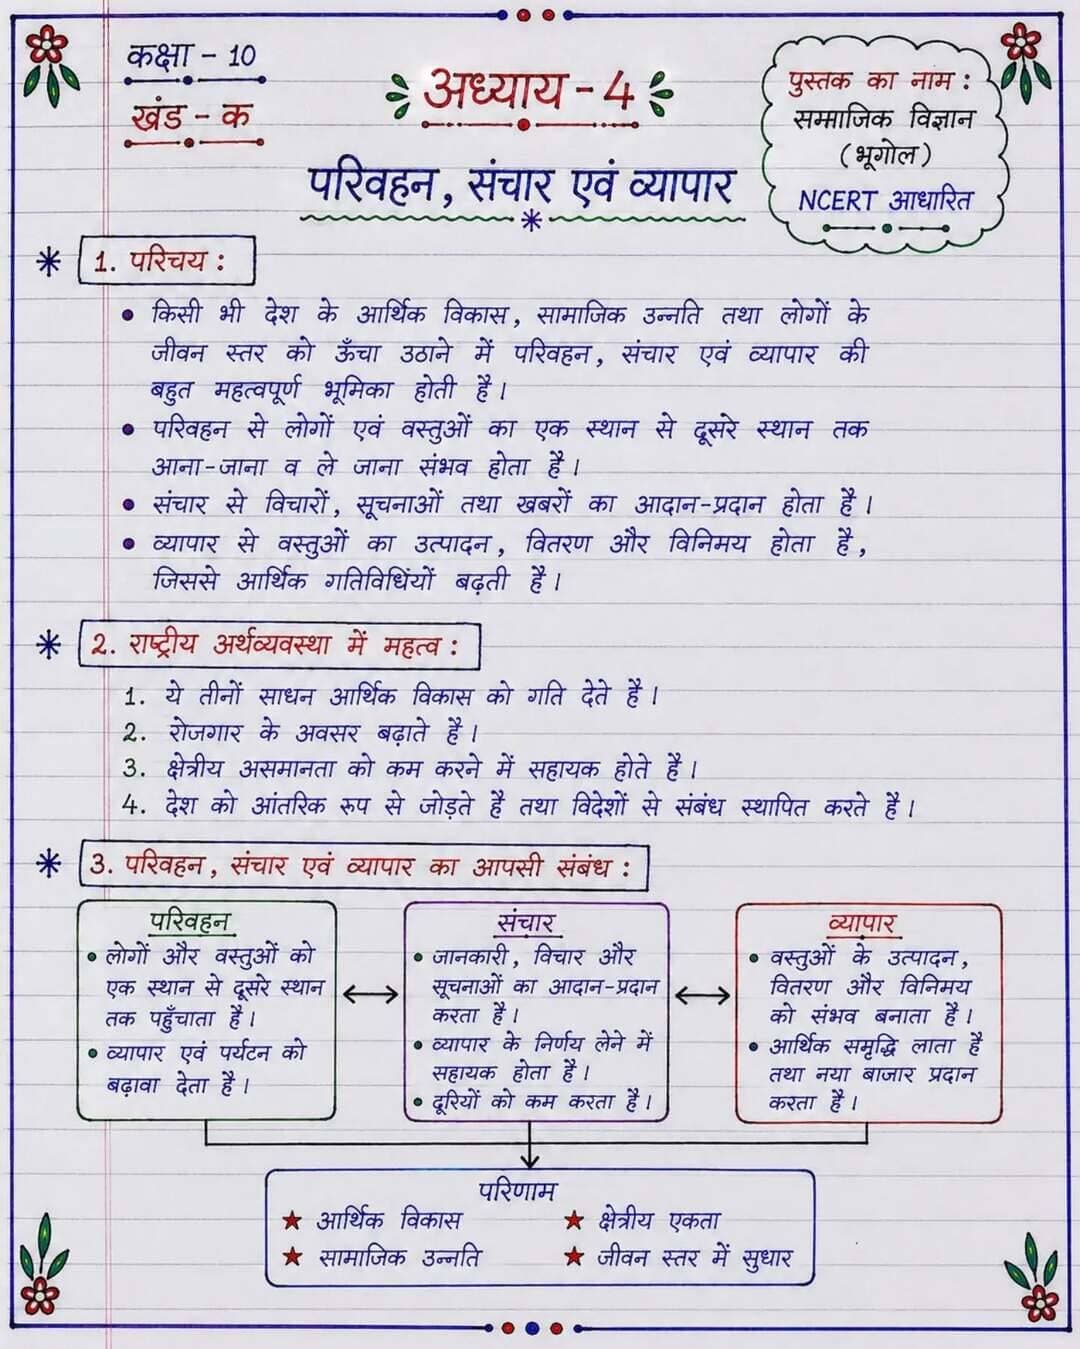 कक्षा - 10
खंड - क
अध्याय - 4
पुस्तक का नाम :
सामाजिक विज्ञान
(भूगोल)
NCERT आधारित
परिवहन, संचार एवं व्यापार
1. परिचय :
• किसी भी देश के आर्थिक विकास, सामाजिक उन्नति तथा लोगों के
जीवन स्तर को ऊँचा उठाने में परिवहन, संचार एवं व्यापार की
बहुत महत्वपूर्ण भूमिका होती है।
• परिवहन से लोगों एवं वस्तुओं का एक स्थान से दूसरे स्थान तक
आना-जाना व ले जाना संभव होता है।
• संचार से विचारों, सूचनाओं तथा खबरों का आदान-प्रदान होता है।
• व्यापार से वस्तुओं का उत्पादन, वितरण और विनिमय होता है,
जिससे आर्थिक गतिविधियों बढ़ती है।
2. राष्ट्रीय अर्थव्यवस्था में महत्व :
1. ये तीनों साधन आर्थिक विकास को गति देते है।
2. रोजगार के अवसर बढ़ाते है।
3. क्षेत्रीय असमानता को कम करने में सहायक होते है।
4. देश को आंतरिक रूप से जोड़ते है तथा विदेशों से संबंध स्थापित करते है।
3. परिवहन, संचार एवं व्यापार का आपसी संबंध :
परिवहन
• लोगों और वस्तुओं को
एक स्थान से दूसरे स्थान
तक पहुँचाता है।
• व्यापार एवं पर्यटन को
बढ़ावा देता है।
संचार
• जानकारी, विचार और
सूचनाओं का आदान-प्रदान
करता है।
• व्यापार के निर्णय लेने में
सहायक होता है।
• दूरियों को कम करता है।
व्यापार
• वस्तुओं के उत्पादन,
वितरण और विनिमय
को संभव बनाता है।
• आर्थिक समृद्धि लाता है
तथा नया बाजार प्रदान
करता है।
परिणाम
★ आर्थिक विकास
★ क्षेत्रीय एकता
★ सामाजिक उन्नति
★ जीवन स्तर में सुधार